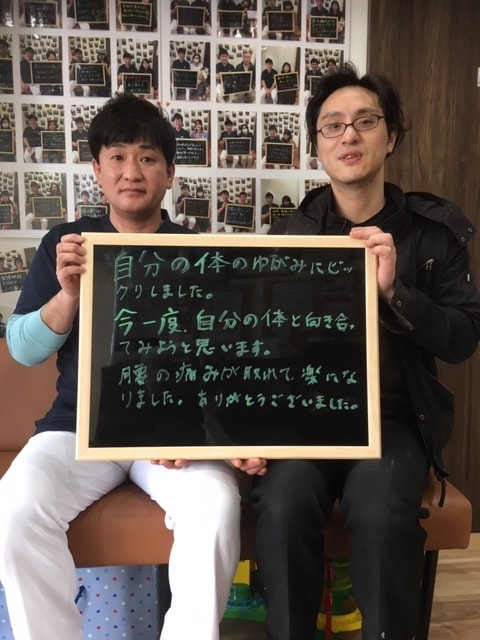 自分の体のゆがみにビッ
クリしました。
今一度、自分の体と向き合っ
てみようと思います。
腰の痛みが取れて、楽にな
りました。ありがとうございました。